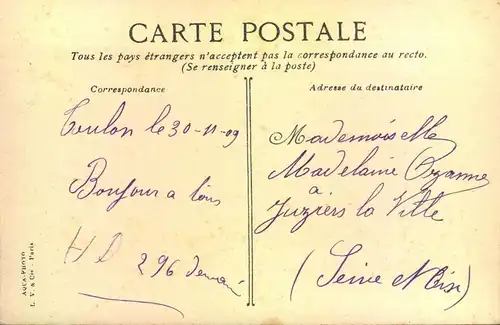 CARTE POSTALE
Tous les pays étrangers n'acceptent pas la correspondance au recto.
(Se renseigner à la poste)
Correspondance
Toulon le 30-11-09
Bonjour a tous
H D
296 demain
AQUA-PHOTO
L. V. & Cie - Paris
Adresse du destinataire
Mademoiselle
Madelaine Ozanne
a
Juziers la Ville
(Seine et Oise)